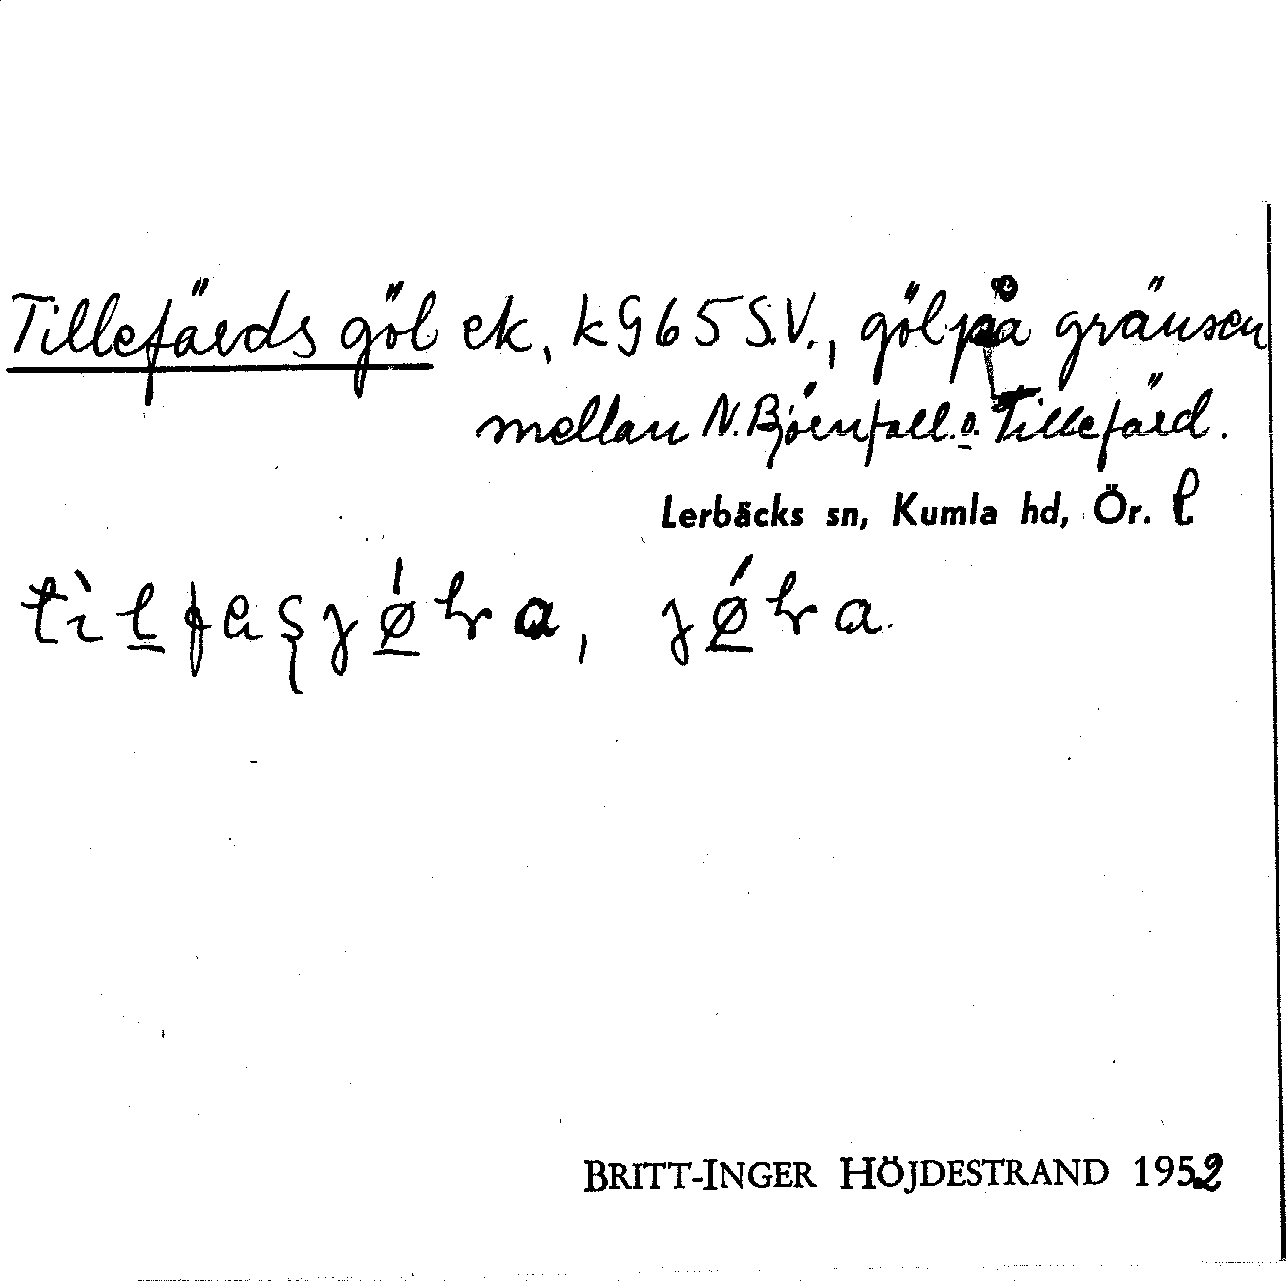 Tillefärds göl ek, k G65 S.V., göl på gränsen
mellan N. Björnfall. o. Tillefärd.
Lerbäcks sn, Kumla hd, Ör. l
BRITT-INGER HÖJDESTRAND 1952